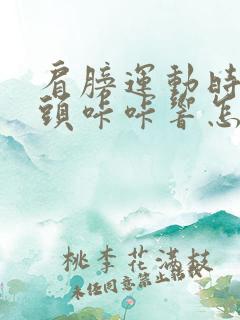 肩膀運動時
頭咔咔響怎
桃李花滿枝
未任同意禁止转载